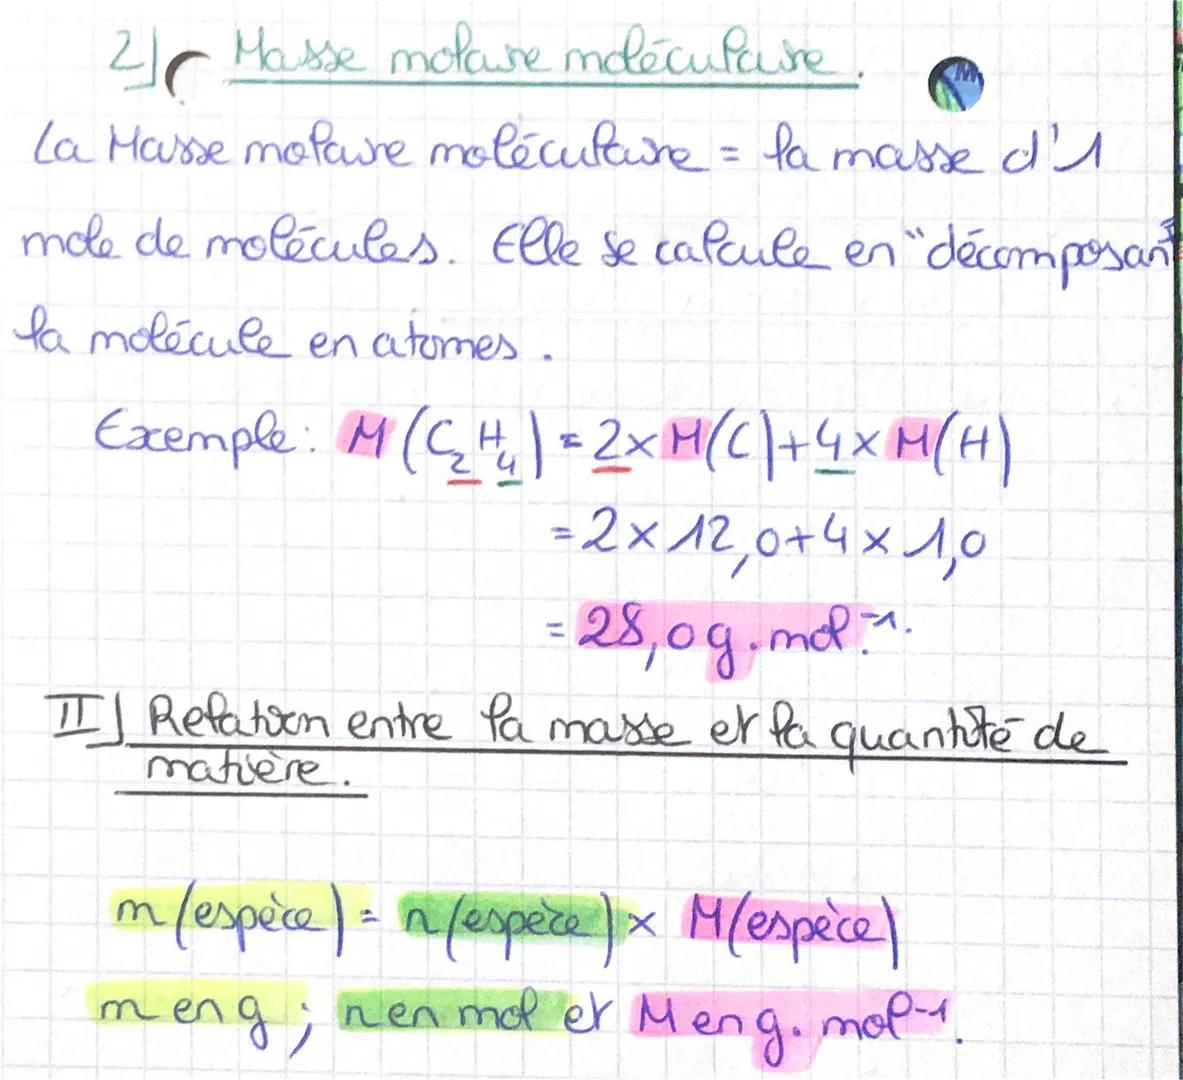 2] Masse molaire moléculaire.
La Masse molaire moléculaire = la masse d'1
mole de molécules. Elle se calcule en "décomposant
la molécule en atomes.
Exemple: M(C₂H₄) = 2×M(C)+4×M(H)
= 2×12,0+4×1,0
= 28,0 g.mol⁻¹.
II] Relation entre la masse et la quantité de
matière.
m(espèce) = n(espèce) × M(espèce)
m en g ; n en mol et M en g.mol⁻¹.